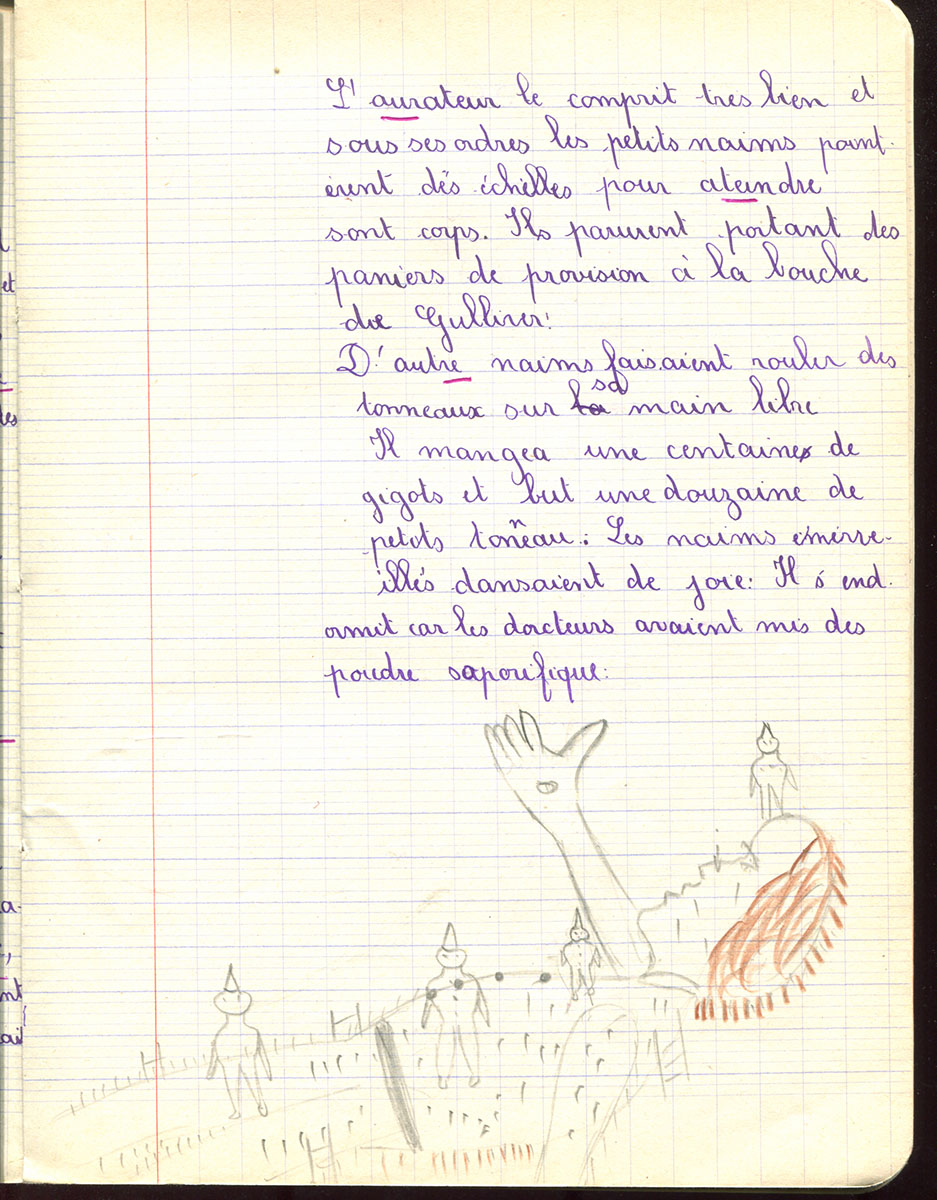 L'aurateur le comprit tres bien et
sous ses ordres les petits naims point-
èrent dés échelles pour ateindre
sont corps. Ils parurent portant des
paniers de provision à la bouche
de Gulliver.
D'autre naims faisaient rouler des
tonneaux sur la sa main libre
Il mangea une centaine de
gigots et but une douzaine de
petits tonneau. Les naims émerve-
illés dansaient de joie. Il s'end-
ormit car les docteurs avaient mis des
poudre saporifique.
et
les
a-
nt
ail